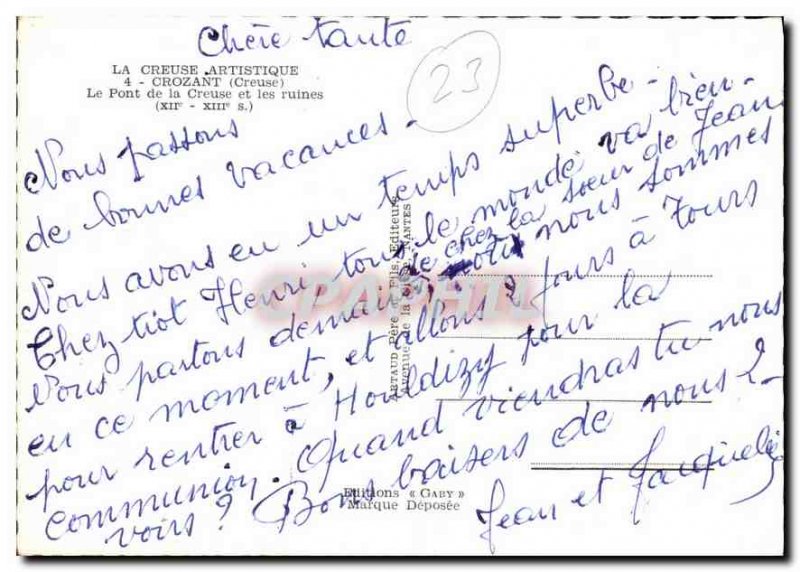 Chère tante
23
LA CREUSE ARTISTIQUE
4 - CROZANT (Creuse)
Le Pont de la Creuse et les ruines
(XIIe - XIIIe s.)
Nous passons
de bonnes vacances.
Nous avons eu un temps superbe -
Chez tiot Henri tous le monde va bien -
Nous partons demain de chez la sœur de Jean
où nous sommes
en ce moment, et allons 2 jours à Tours
pour rentrer à Houldizy pour la
communion. Quand viendras tu nous
voirs ? Bons baisers de nous 2 -
Jean et Jacqueline
ARTAUD Père et Fils, Editeurs
Avenue de la NANTES
CPAPHIL
Editions « GABY »
Marque Déposée